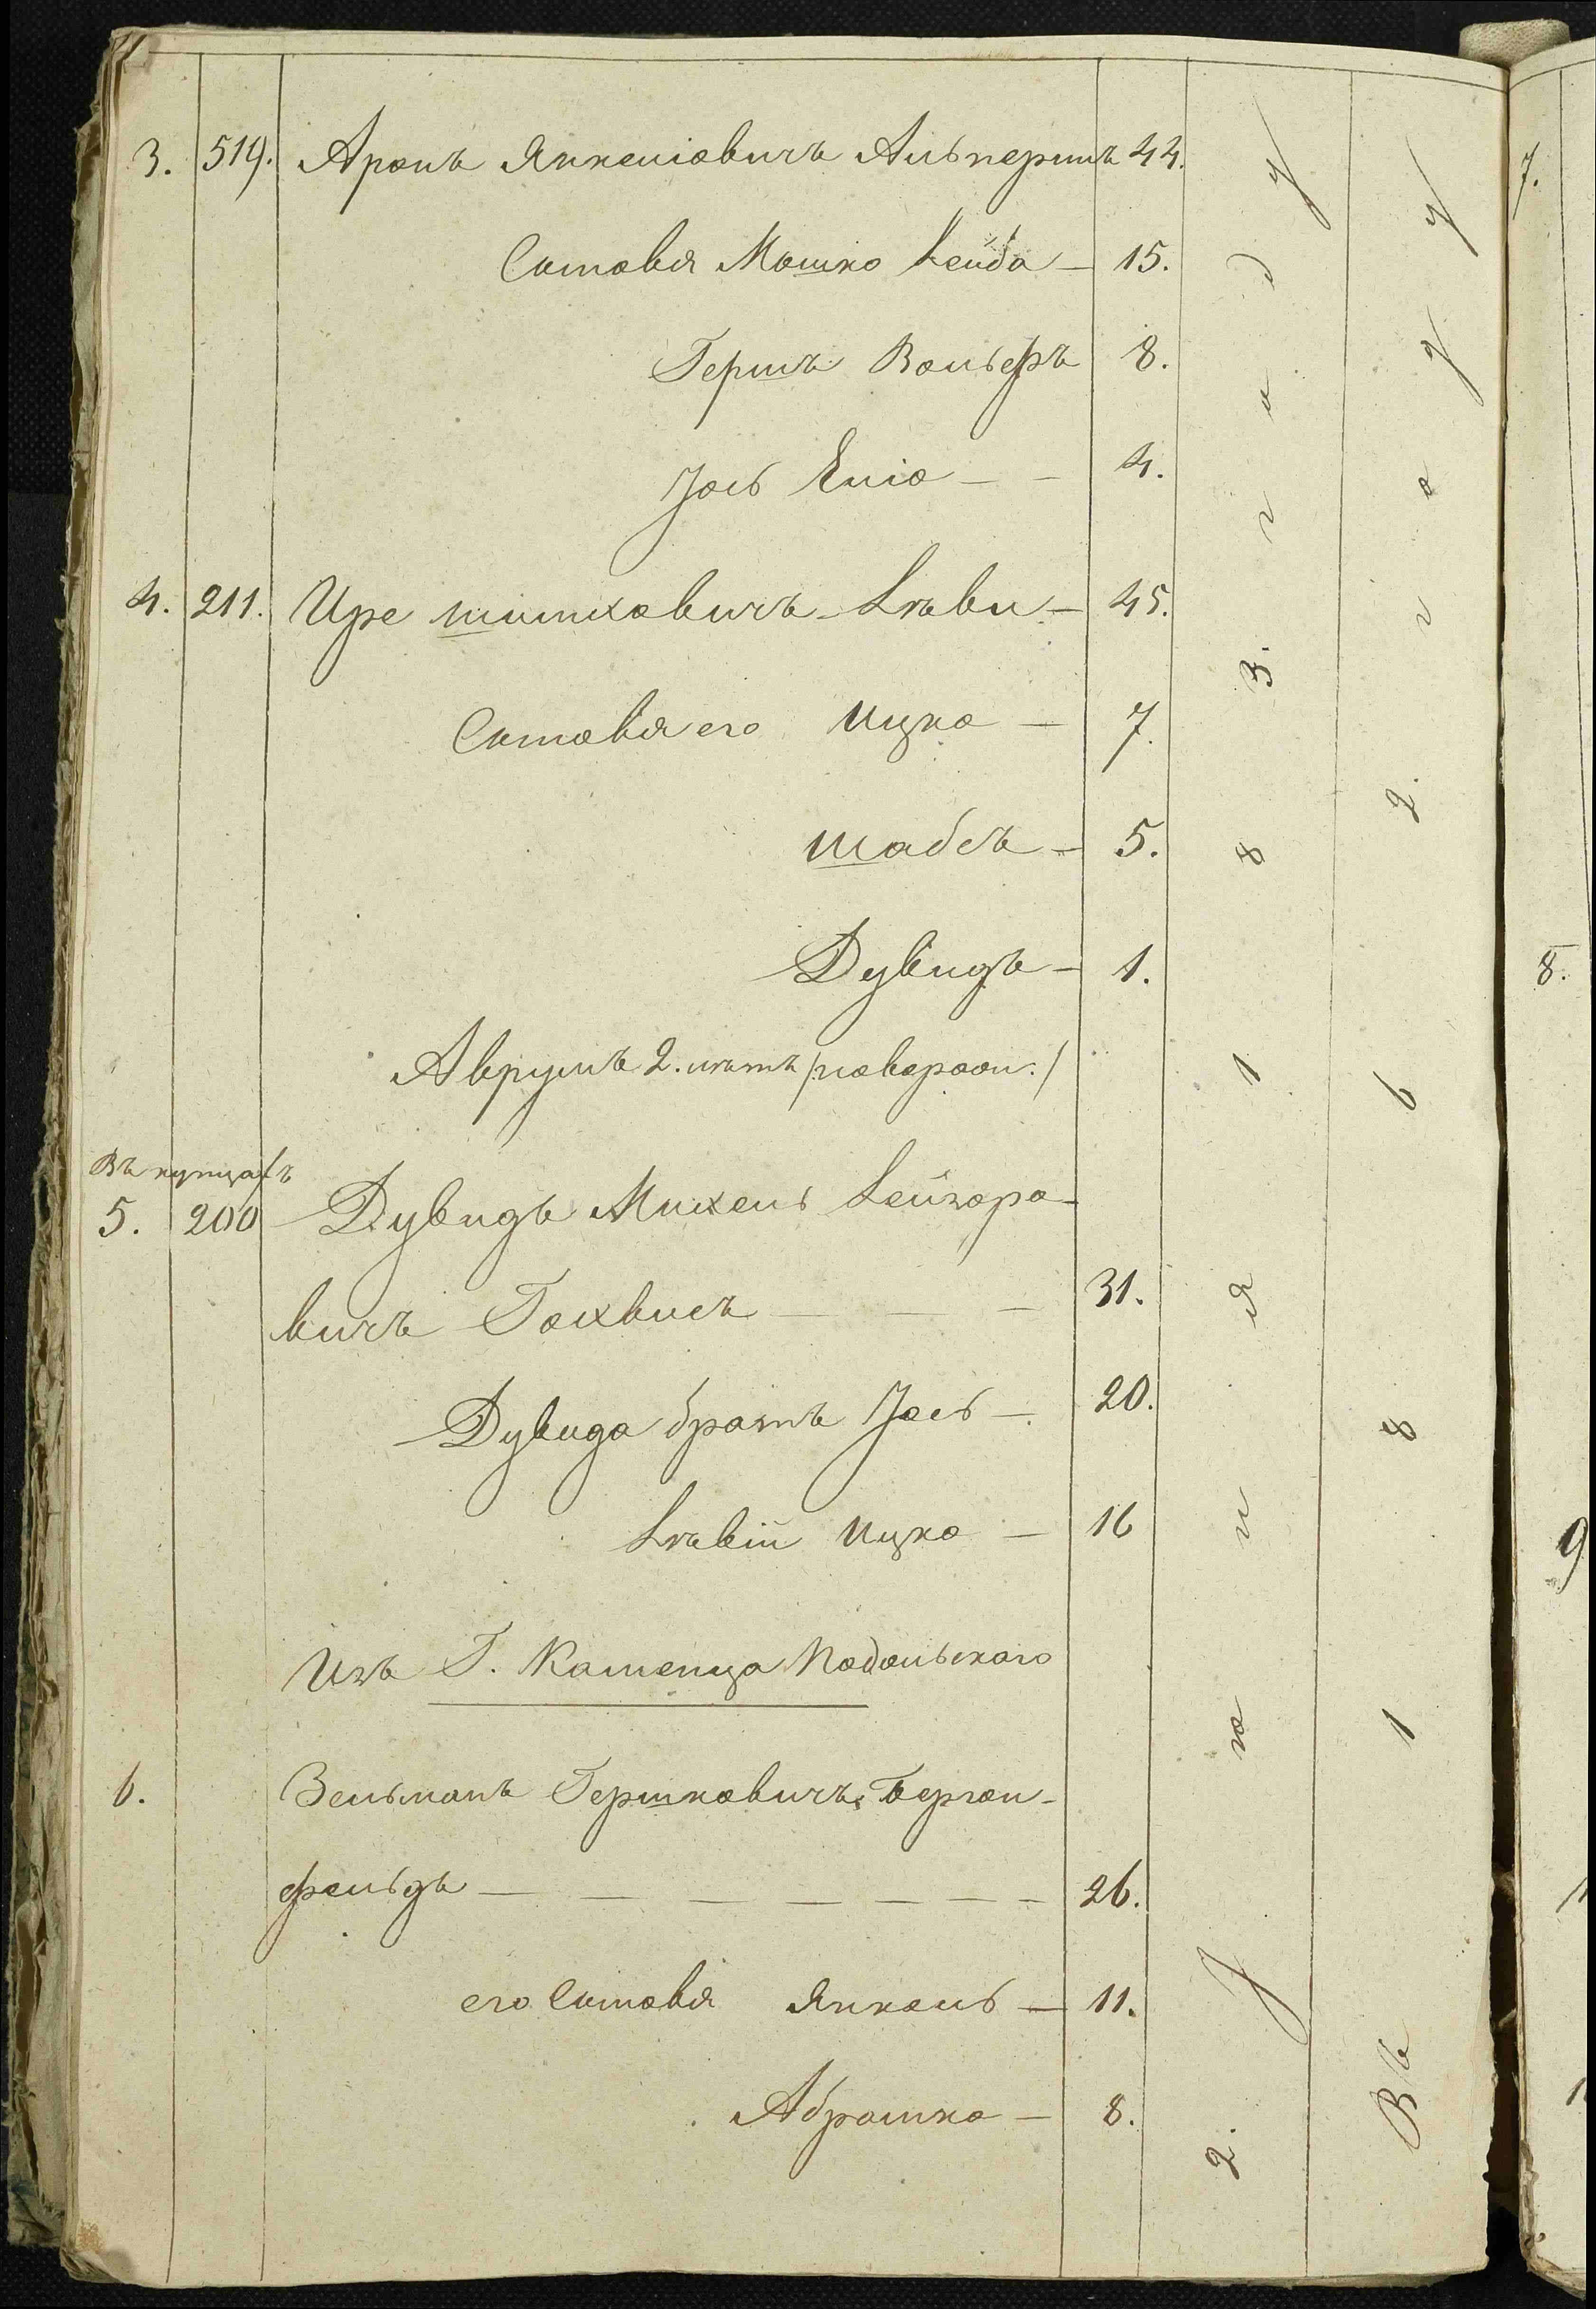 3. 519. Аронъ Янкеліовичъ Альперинъ 44.
Сыновья Мошко Лейба — 15.
Гершъ Вольфъ 8.
Іось Еліо — — 4.
4. 211. Ире Шинховичъ Лѣви — 45.
Сыновья его Ицко — 7.
Шабсъ — 5.
Дувидъ — 1.
Аврумъ 2. лѣтъ /:новорож:/
Въ купцахъ
5. 200 Дувидъ Михель Лейзоро-
вичъ Гохвисъ — — — 31.
Дувида братъ Іось — 20.
Лѣвій Ицко — 16
Изъ Г. Каменца Подольскаго
6. Зельманъ Гершковичъ Берген-
фельдъ — — — — — — — 26.
его Сыновья Янкель — 11.
Абрашко — 8.
2. Іюня 183. году
Въ 1862. году
7.
8.
9